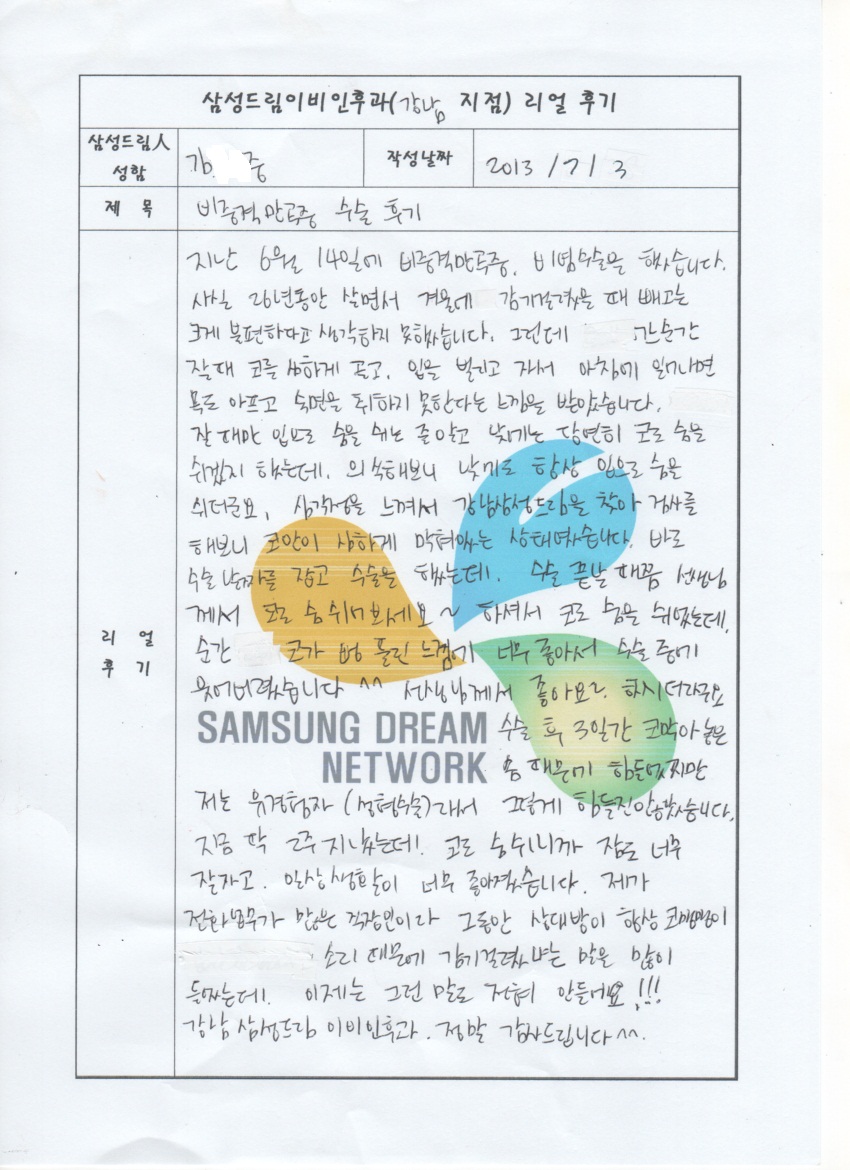 삼성드림이비인후과(강남 지점) 리얼 후기
삼성드림人 성함 김 중 작성날짜 2013 / 7 / 3
제 목 비중격만곡증 수술 후기
리 얼 후 기
지난 6월 14일에 비중격만곡증, 비염수술을 했습니다.
사실 26년동안 살면서 겨울에 감기걸렸을 때 빼고는
크게 불편하다고 생각하지 못했습니다. 그런데 간순간
잘때 코를 심하게 골고, 입을 벌리고 자서 아침에 일어나면
목도 아프고 숙면을 취하지 못한다는 느낌을 받았습니다.
잘 때만 입으로 숨을 쉬는 줄알고 낮에는 당연히 코로 숨을
쉬겠지 했는데, 의식해보니 낮에도 항상 입으로 숨을
쉬더군요, 심각성을 느껴서 강남삼성드림을 찾아 검사를
해보니 코안이 심하게 막혀있는 상태였습니다. 바로
수술 날짜를 잡고 수술을 했는데, 수술 끝날 때쯤 선생님
께서 코로 숨 쉬어보세요~ 하셔서 코로 숨을 쉬었는데,
순간 코가 뻥 뚫린 느낌이 너무 좋아서 수술 중에
웃어버렸습니다 ^^ 선생님께서 좋아요?, 하시더라구요
SAMSUNG DREAM
NETWORK
수술 후 3일간 코막아 놓은
솜 때문에 힘들었지만
저는 유경험자 (성형수술)라서 그렇게 힘들진안았습니다.
지금 딱 2주 지났는데! 코로 숨쉬니까 잠도 너무
잘자고, 일상생활이 너무 좋아졌습니다. 제가
전화업무가 많은 직장인이라 그동안 상대방이 항상 코맹맹이
소리 때문에 감기걸렸냐는 말을 많이
들었는데! 이제는 그런 말도 전혀 안들어요!!!
강남 삼성드림 이비인후과. 정말 감사드립니다^^.